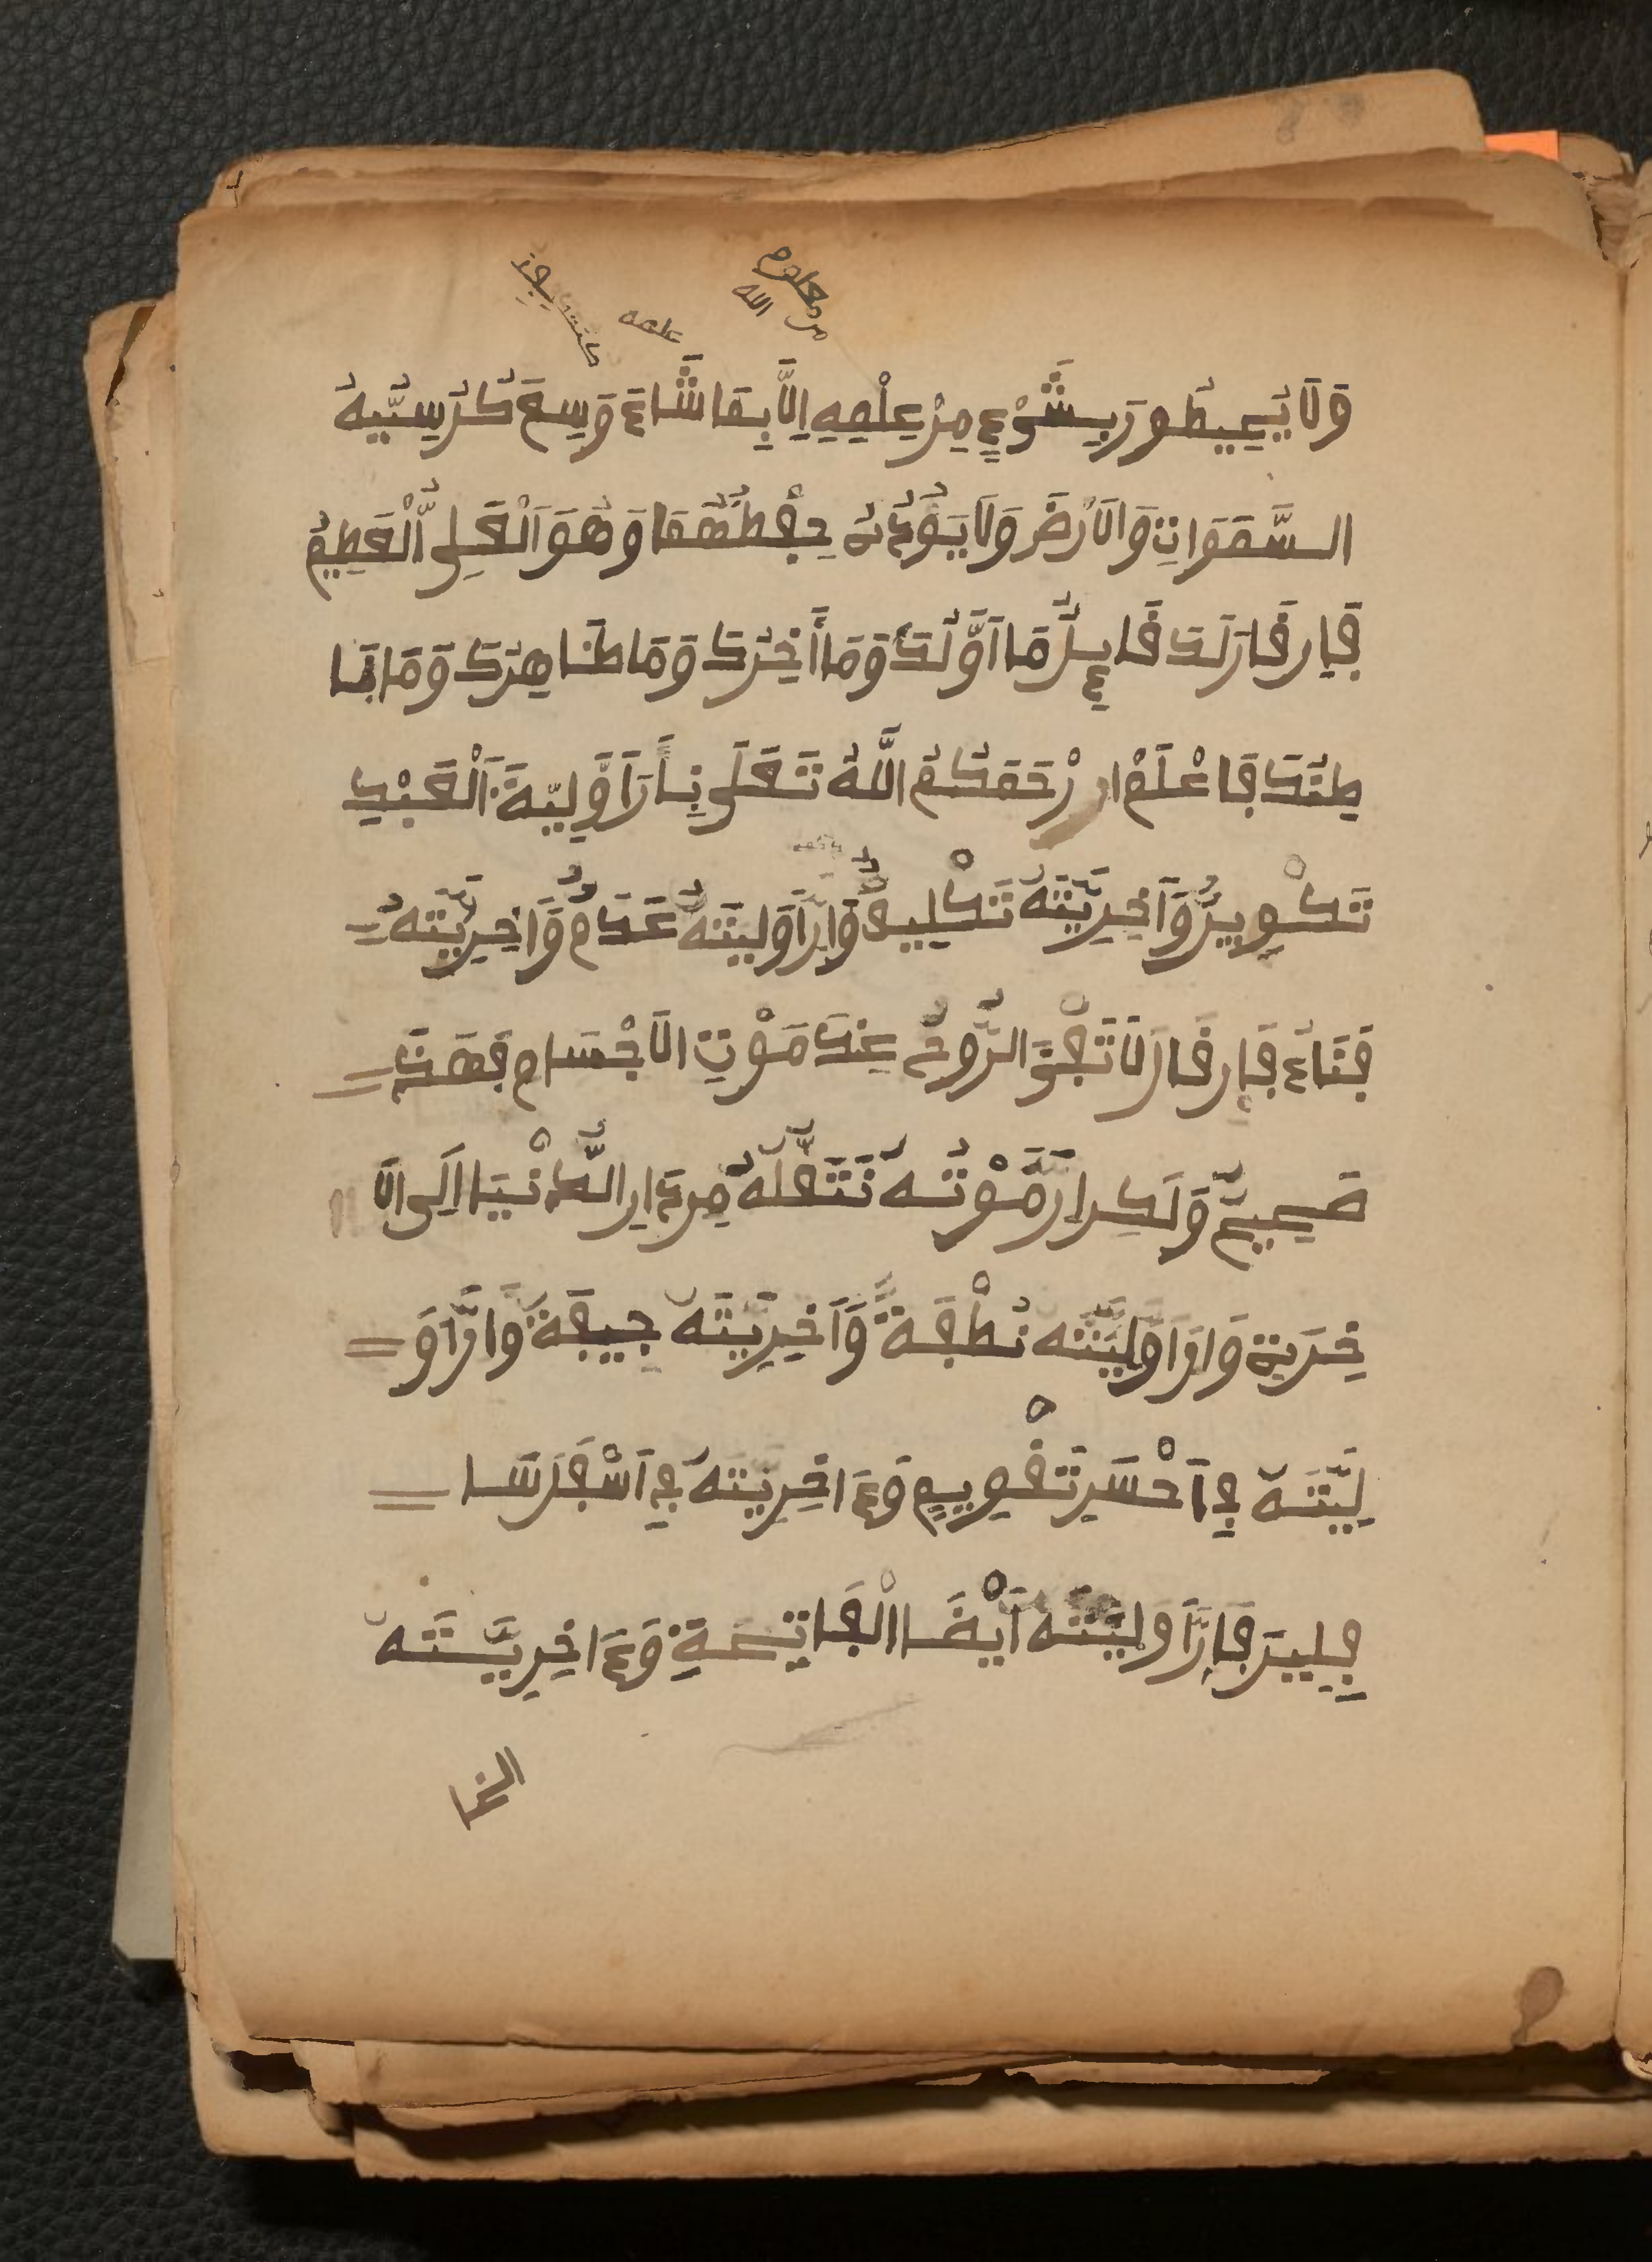 من معلوم
الله
علمه
وَلَا يُحِيطُونَ بِشَيْءٍ مِنْ عِلْمِهِ إِلَّا بِمَا شَاءَ وَسِعَ كُرْسِيُّهُ
السَّمَوَاتِ وَالَارْضَ وَلَا يَـُٔودُهُ حِفْظُهُمَا وَهُوَ اَلْعَلِىُّ الْعَظِيمُ
فَإِن قَالَ لَكَ قَائِلٌ مَا أَوَّلُكَ وَمَا أَخِرُكَ وَمَا ظَاهِرُكَ وَمَا بَا
طِنُكَ فَاعْلَمْ رْحَمَكُمُ اللَّهُ تَعَلَى بِأَنَّ أَوَّلِيَّةَ اَلْعَبْدِ
تَكْوِينٌ وَأَخِرِيَّتَهُ تَكْلِيفٌ وَإِنَّ أَوَّلِيَّتَهُ عَدَامٌ وَأَخِرِيَّتَهُ
فَنَاءٌ فَإِن قَالَ لَا تَفْنَى الرُّوحُ عِنْدَ مَوْتِ الَاجْسَامِ فَهَذَا
صَحِيحٌ وَلَكِن إِنَّ مَوْتَهُ نَتَقَلَهُ مِن دَارِ الدُّنْيَا اِلَى الَا
خِرَةِ وَإِنَّ أَوَّلِيَّتَهُ نُطْفَةً وَأَخِرِيَّتَهُ جِيفَةً وَإِنَّ أَوَّ
لِيَّتَهُ فِي أَحْسَنِ تَقْوِيمٍ وَءَاخِرِيَّتَهُ فِي أَسْفَلَ سَا
فِلِينَ فَإِنَّ أَوَّلِيَّتَهُ أَيْضَا الْفَاتِحَةِ وَءَاخِرِيَّتَهُ
الخا